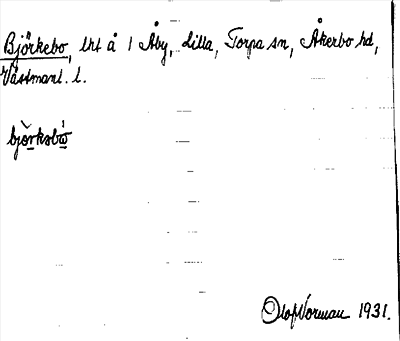 Björkebo, lht å 1 Åby, Lilla, Torpa sn, Åkerbo hd,
Västmanl. l.
bjö̀rkebὼ
Olof Norman 1931.